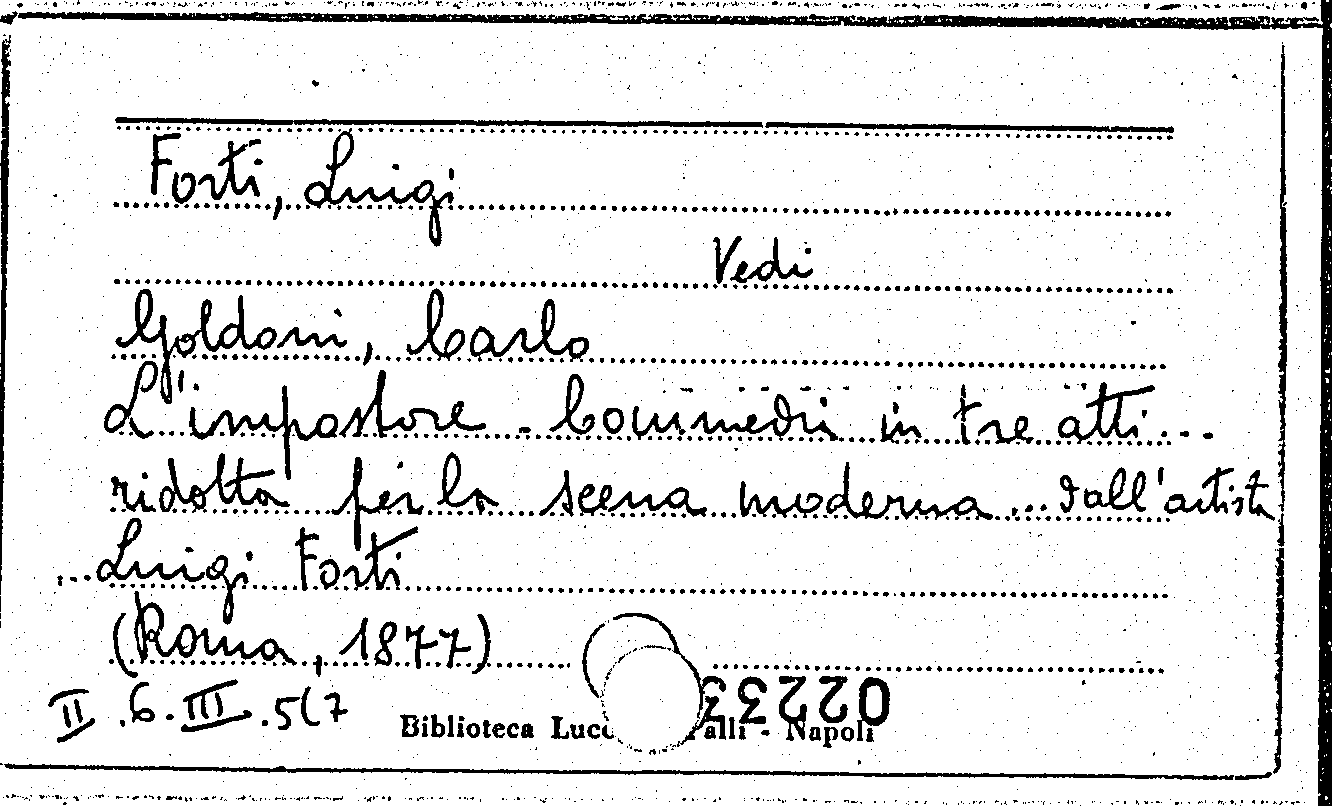 Forti, Luigi
Vedi
Goldoni, Carlo
L'impostore - Commedia in tre atti...
ridotta per la scena moderna... dall'artista
...Luigi Forti
(Roma, 1877)
II.6.III.5(7
02233
Biblioteca Lucc alli - Napoli